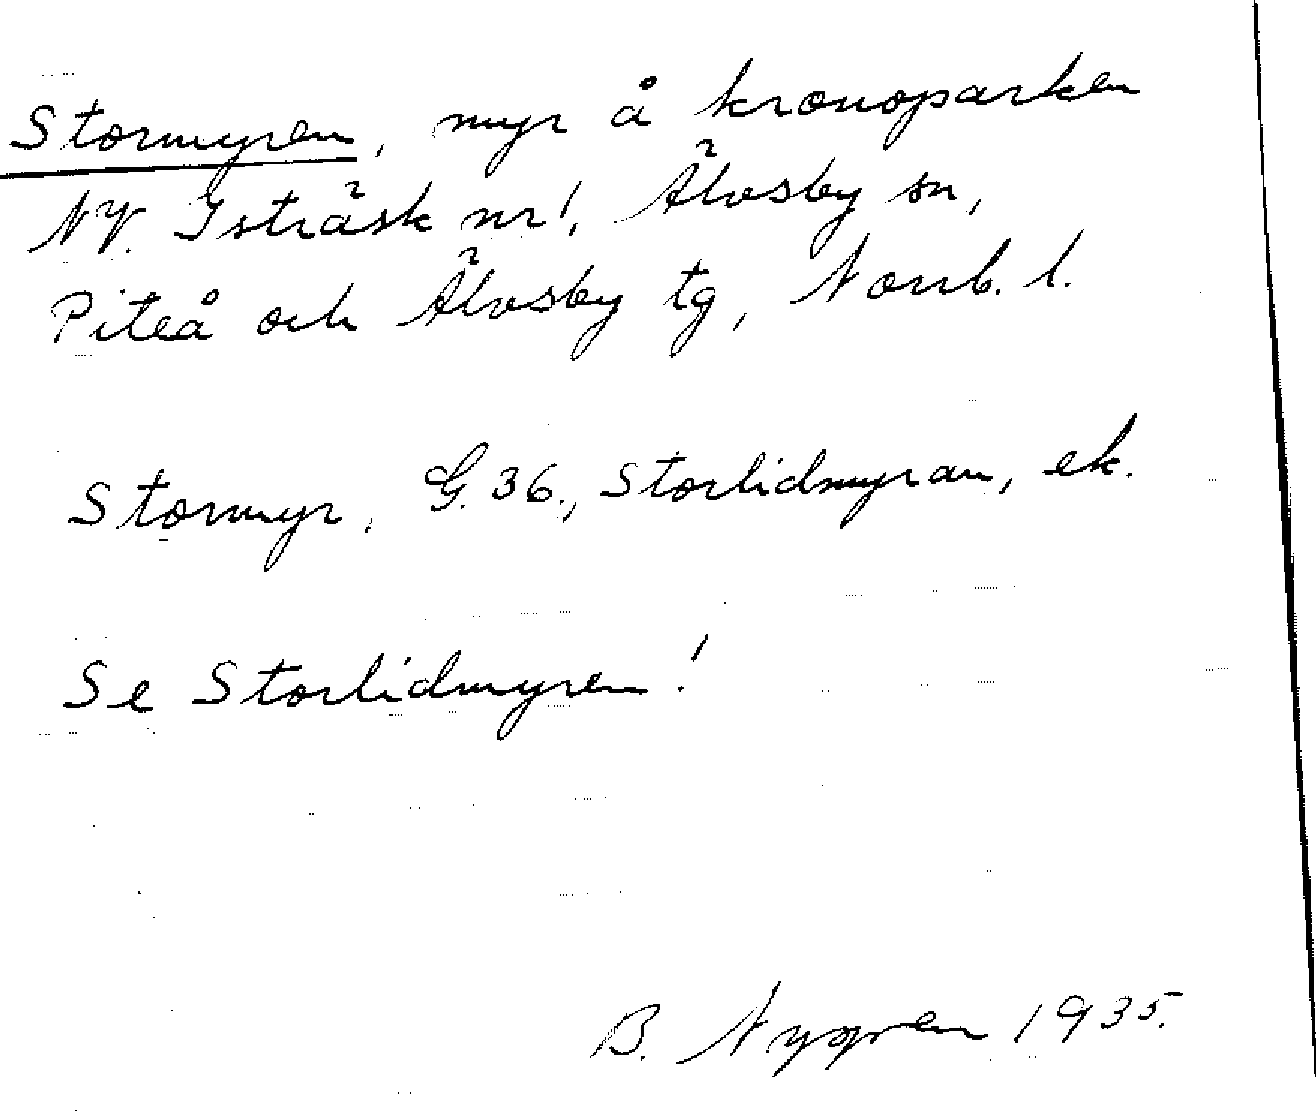 Stormyren, myr å kronoparken
NV. Isträsk nr 1, Älvsby sn,
Piteå och Älvsby tg, Norrb. l.
Stormyr, G. 36., Storlidmyran, ek.
Se Storlidmyren!
B. Nygren 1935.